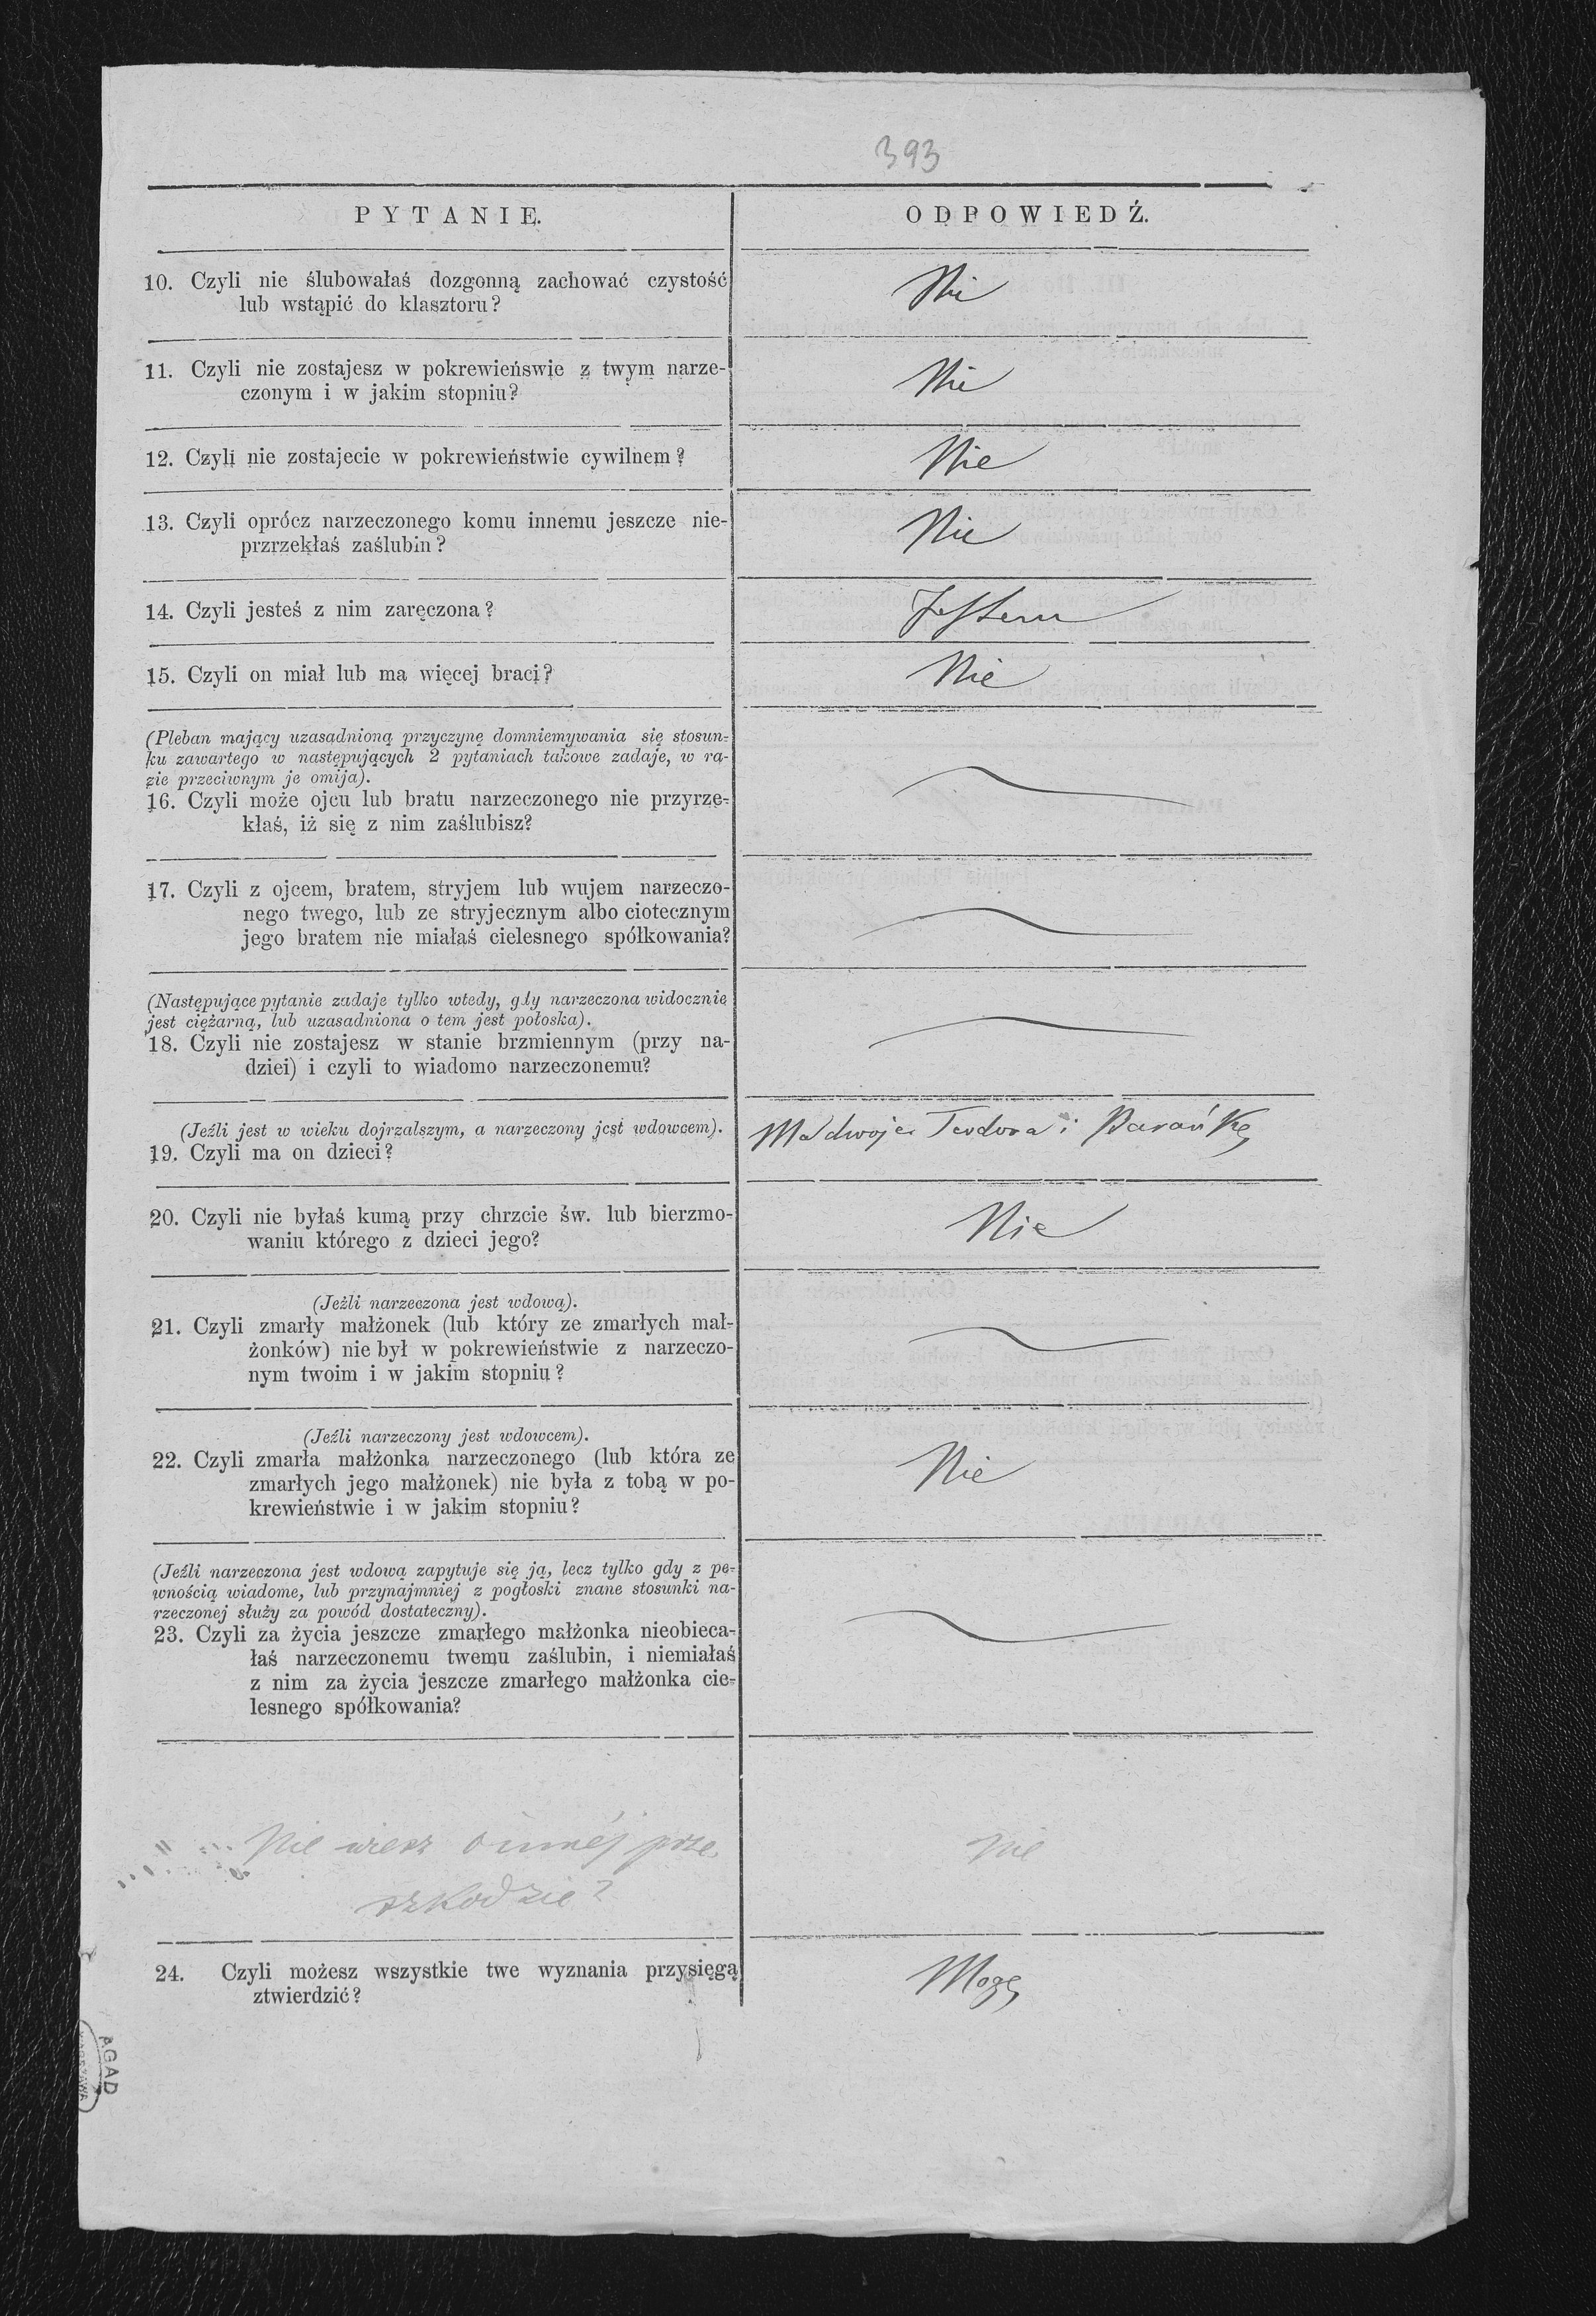 393
PYTANIE.
ODPOWIEDŹ.
10. Czyli nie ślubowałaś dozgonną zachować czystość
lub wstąpić do klasztoru?
Nie
11. Czyli nie zostajesz w pokrewieńswie z twym narze-
czonym i w jakim stopniu?
Nie
12. Czyli nie zostajecie w pokrewieństwie cywilnem?
Nie
13. Czyli oprócz narzeczonego komu innemu jeszcze nie-
przrzekłaś zaślubin?
Nie
14. Czyli jesteś z nim zaręczona?
Jestem
15. Czyli on miał lub ma więcej braci?
Nie
(Pleban mający uzasadnioną przyczynę domniemywania się stosun-
ku zawartego w następujących 2 pytaniach takowe zadaje, w ra-
zie przeciwnym je omija).
16. Czyli może ojcu lub bratu narzeczonego nie przyrze-
kłaś, iż się z nim zaślubisz?
17. Czyli z ojcem, bratem, stryjem lub wujem narzeczo-
nego twego, lub ze stryjecznym albo ciotecznym
jego bratem nie miałaś cielesnego spółkowania?
(Następujące pytanie zadaje tylko wtedy, gdy narzeczona widocznie
jest ciężarną, lub uzasadniona o tem jest połoska).
18. Czyli nie zostajesz w stanie brzmiennym (przy na-
dziei) i czyli to wiadomo narzeczonemu?
(Jeźli jest w wieku dojrzalszym, a narzeczony jest wdowcem).
19. Czyli ma on dzieci?
Ma dwoje Teodora i Parańkę
20. Czyli nie byłaś kumą przy chrzcie św. lub bierzmo-
waniu którego z dzieci jego?
Nie
(Jeźli narzeczona jest wdową).
21. Czyli zmarły małżonek (lub który ze zmarłych mał-
żonków) nie był w pokrewieństwie z narzeczo-
nym twoim i w jakim stopniu?
(Jeźli narzeczony jest wdowcem).
22. Czyli zmarła małżonka narzeczonego (lub która ze
zmarłych jego małżonek) nie była z tobą w po-
krewieństwie i w jakim stopniu?
Nie
(Jeźli narzeczona jest wdową zapytuje się ją, lecz tylko gdy z pe-
wnością wiadome, lub przynajmniej z pogłoski znane stosunki na-
rzeczonej służy za powód dostateczny).
23. Czyli za życia jeszcze zmarłego małżonka nieobieca-
łaś narzeczonemu twemu zaślubin, i niemiałaś
z nim za życia jeszcze zmarłego małżonka cie-
lesnego spółkowania?
Nie wiesz o innéj prze
szkodzie?
Nie
24. Czyli możesz wszystkie twe wyznania przysięgą
ztwierdzić?
Mogę
AGAD